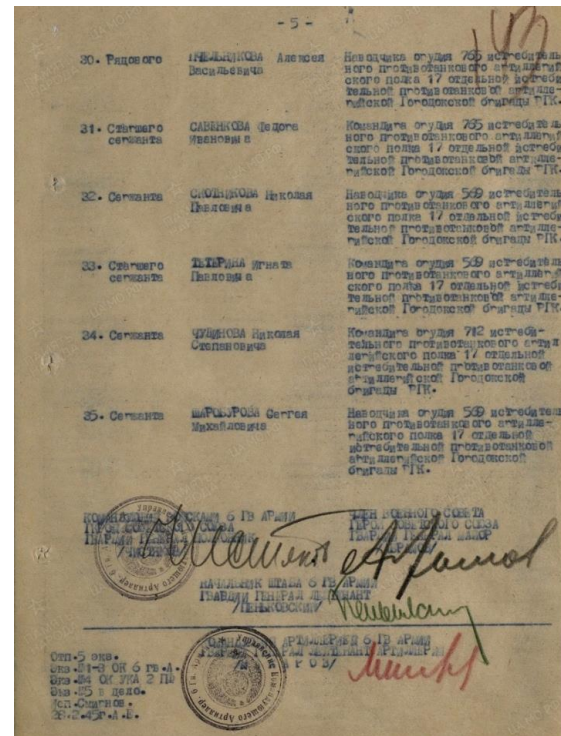 - 5 -
30. Рядового Алексея Васильевича
Наводчика орудия 765 истребитель
ного противотанкового артиллерий
ского полка 17 отдельной истреби
тельной противотанковой артилле-
рийской Городокской бригады РГК.
31. Старшего сержанта САВЕНКОВА Федора Ивановича
Командира орудия 765 истребитель
ного противотанкового артиллерий
ского полка 17 отдельной истреби
тельной противотанковой артилле-
рийской Городокской бригады РГК.
32. Сержанта Николая Павловича
Наводчика орудия 569 истребитель
ного противотанкового артиллерий
ского полка 17 отдельной истреби
тельной противотанковой артилле-
рийской Городокской бригады РГК.
33. Старшего сержанта ТЕТЕРИНА Игната Павловича
Командира орудия 569 истребитель
ного противотанкового артиллерий
ского полка 17 отдельной истреби
тельной противотанковой артилле-
рийской Городокской бригады РГК.
34. Сержанта ЧУДИНОВА Николая Степановича
Командира орудия 712 истреби-
тельного противотанкового артил
лерийского полка 17 отдельной
истребительной противотанковой
артиллерийской Городокской
бригады РГК.
35. Сержанта ШАРОБУРОВА Сергея Михайловича
Наводчика орудия 569 истребитель
ного противотанкового артилле-
рийского полка 17 отдельной
истребительной противотанковой
артиллерийской Городокской
бригады РГК.
6 ГВ АРМИИ
ЧЛЕН ВОЕННОГО СОВЕТА
ГЕРОЙ СОВЕТСКОГО СОЮЗА
ГВАРДИИ ГЕНЕРАЛ МАЙОР
НАЧАЛЬНИК ШТАБА 6 ГВ АРМИИ
ГВАРДИИ ГЕНЕРАЛ ЛЕЙТЕНАНТ
/ПЕНЬКОВСКИЙ/
АРТИЛЛЕРИЕЙ 6 ГВ АРМИИ
ЛЕЙТЕНАНТ АРТИЛЛЕРИИ
Отп-5 экз.
Экз.№1-3 ОК 6 гв.А.
Экз.№4 ОК УКА 2 ПБ
Экз.№5 в дело.
Исп.Смирнов.